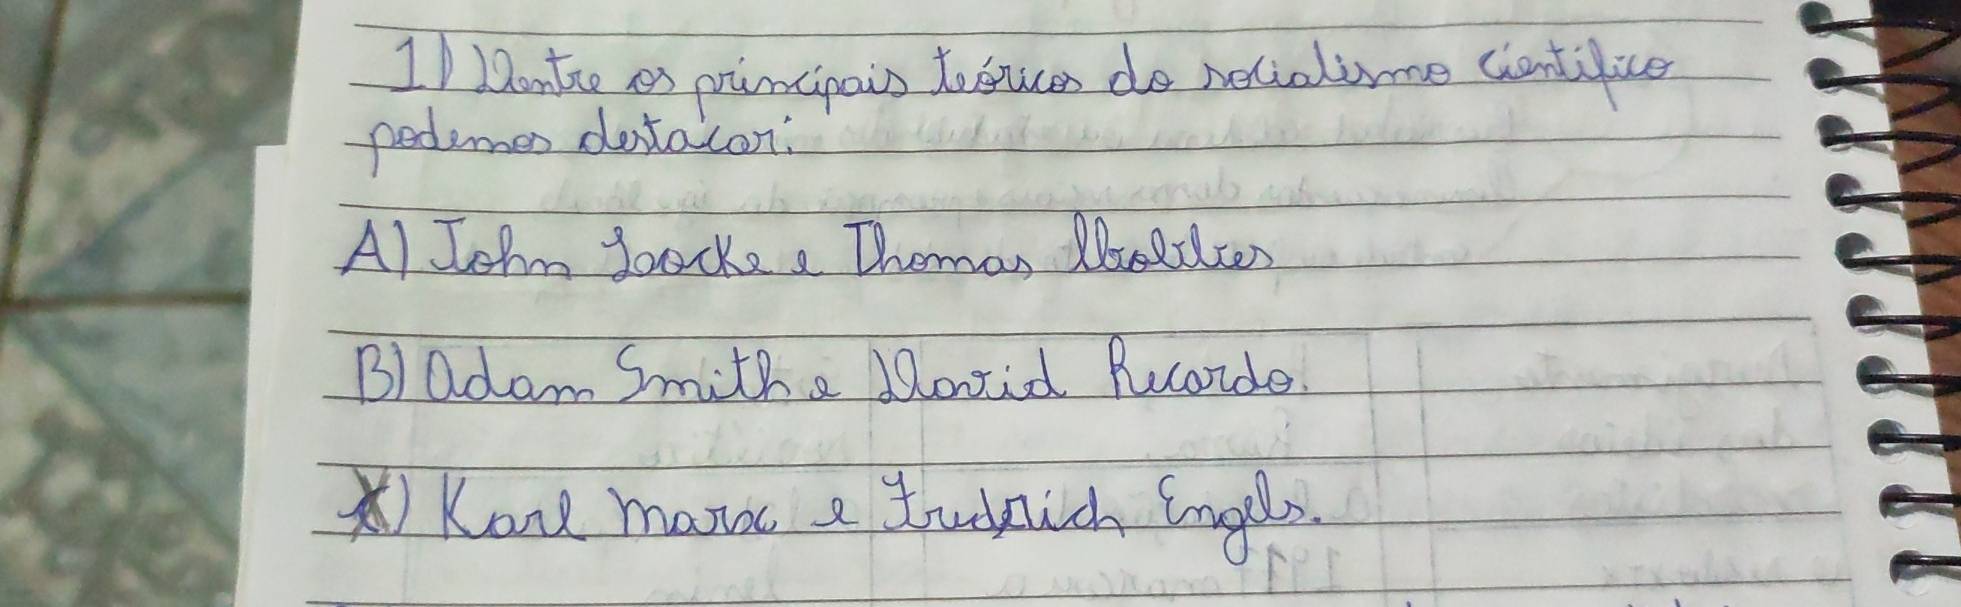 1) Dentre os principais teóricos do socialismo científico
podemos destacar:
A) John Loocke e Thomas
B) Adam Smith e David Recardo.
X) Karl Marx e Frederich Engels.